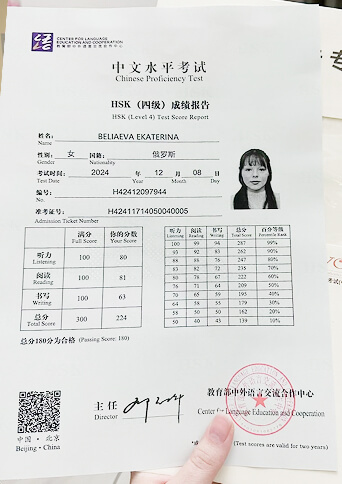 CENTER FOR LANGUAGE
EDUCATION AND COOPERATION
教育部中外语言交流合作中心
中文水平考试
Chinese Proficiency Test
HSK（四级）成绩报告
HSK (Level 4) Test Score Report
姓名： BELIAEVA EKATERINA
Name
性别： 女 国籍： 俄罗斯
Gender Nationality
考试时间： 2024 年 12 月 08 日
Test Date Year Month Day
编号： H42412097944
No.
准考证号： H42411714050040005
Admission Ticket Number
满分 你的分数
Full Score Your Score
听力 100 80
Listening
阅读 100 81
Reading
书写 100 63
Writing
总分 300 224
Total Score
总分180分为合格 (Passing Score: 180)
听力 阅读 书写 总分 百分等级
Listening Reading Writing Total Score Percentile Rank
100 99 94 287 99%
95 92 83 262 90%
88 86 76 247 80%
83 82 72 235 70%
80 76 67 222 60%
76 71 64 209 50%
70 65 59 195 40%
64 58 55 179 30%
58 50 50 162 20%
50 43 45 139 10%
主任
Director
教育部中外语言交流合作中心
Center for Language Education and Cooperation
中国・北京
Beijing・China
(Test scores are valid for two years)